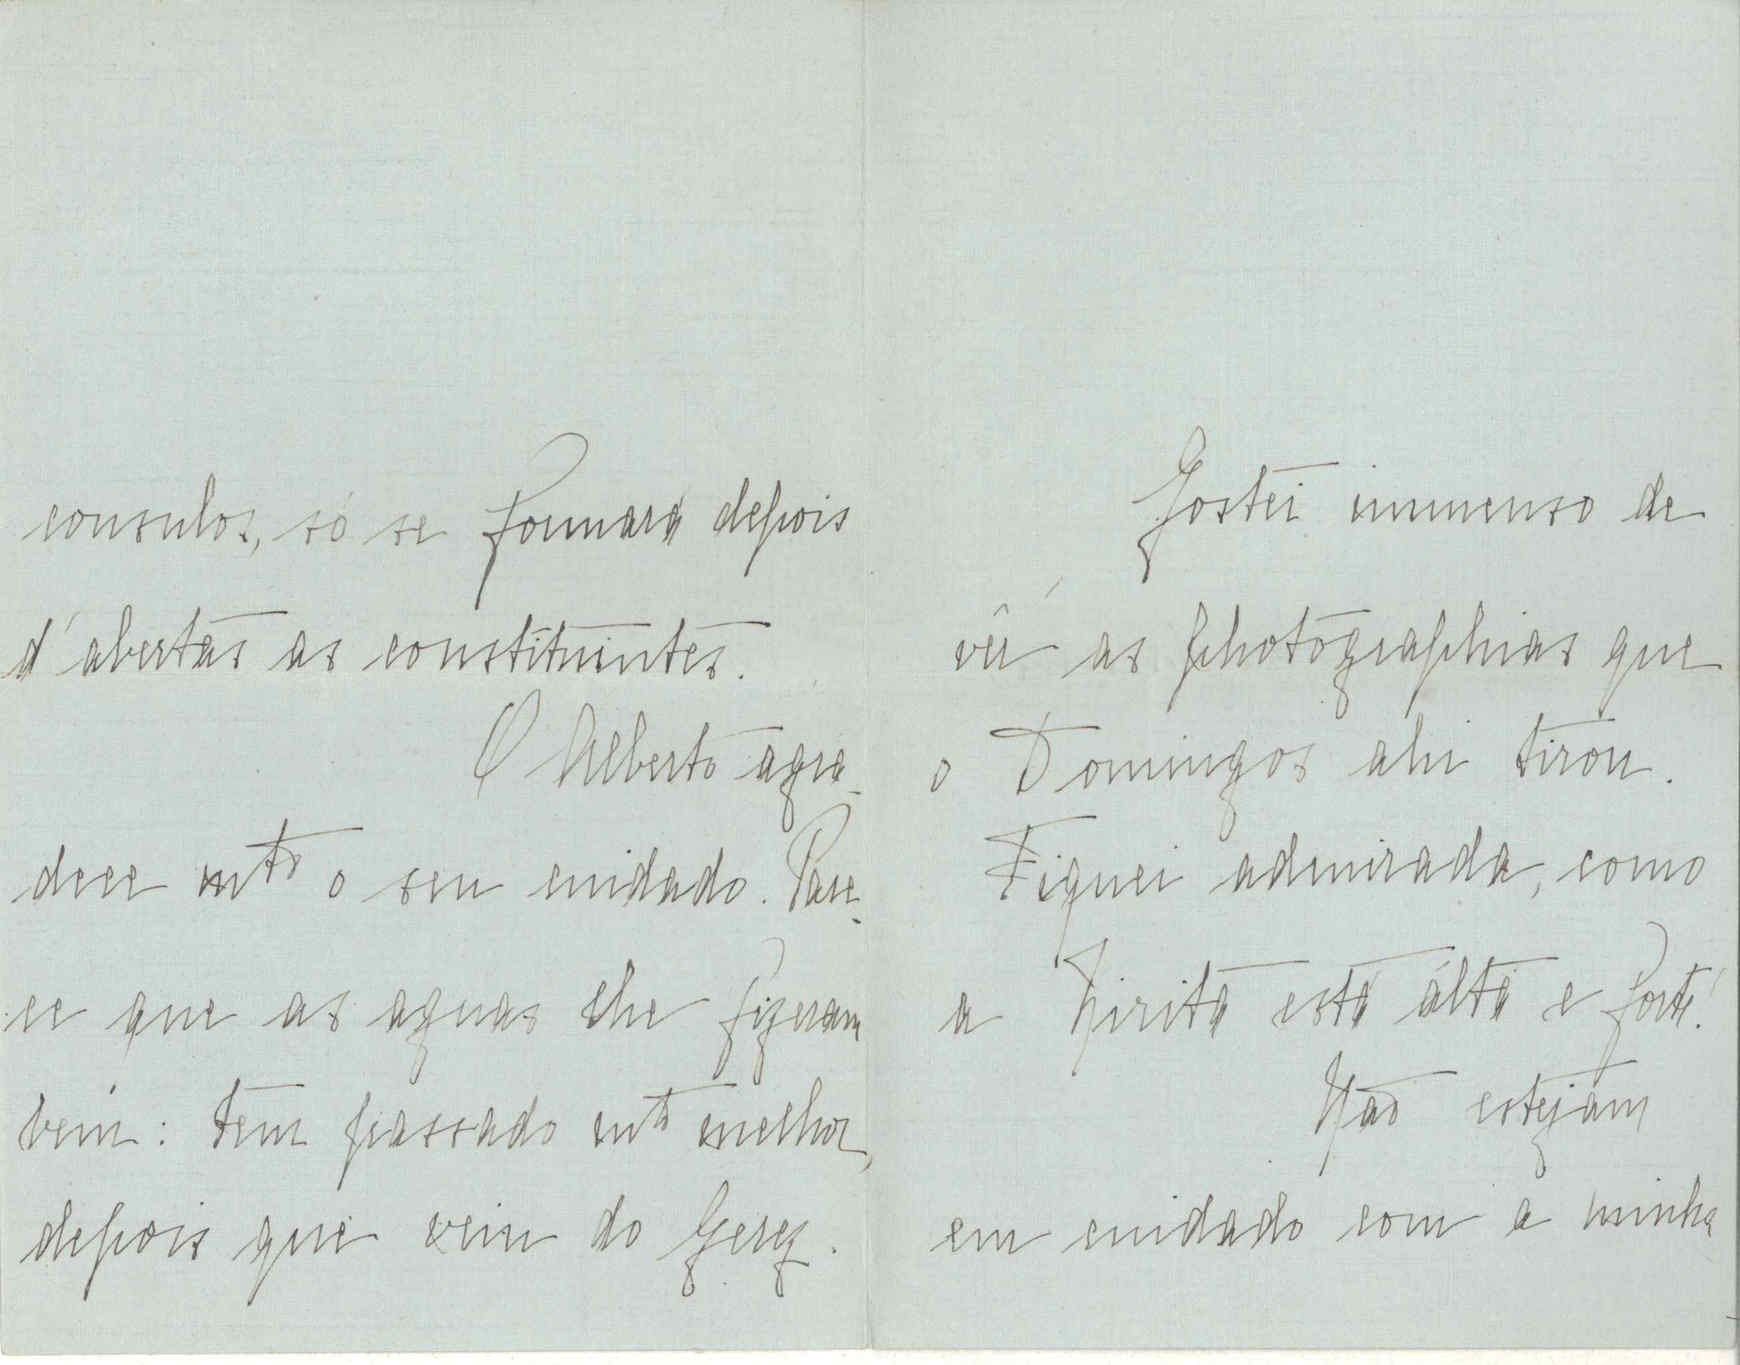 consulos, só se formará depois
d'abertas as constituintes.
O Alberto agra-
dece mto o seu cuidado. Pare-
ce que as aguas lhe fizeram
bem: tem passado mto melhor,
depois que veiu do Gerez.
Gostei immenso de
vêr as photographias que
o Domingos ahi tirou.
Fiquei admirada, como
a está alta e forte!
Não estejam
em cuidado com a minha